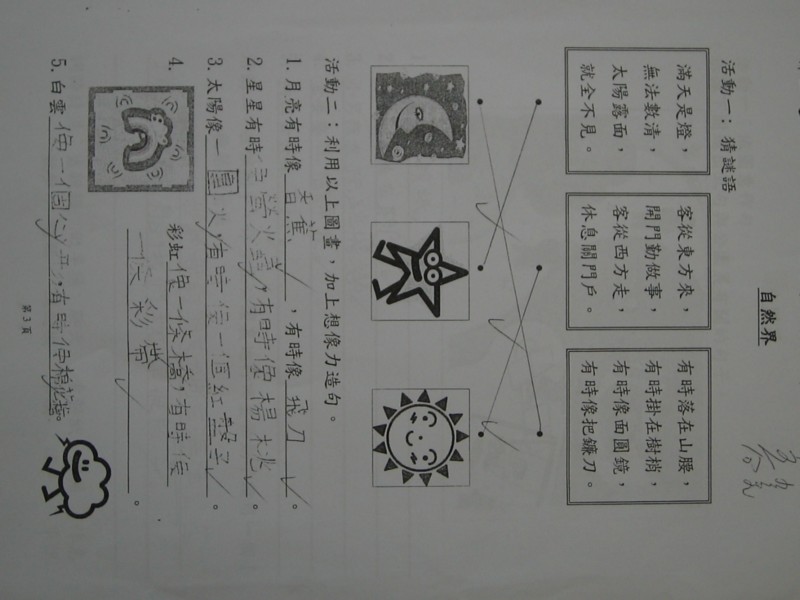 自然界
活動一：猜謎語
滿天是燈，
無法數清，
太陽露面，
就全不見。
客從東方來，
開門勤做事，
客從西方走，
休息關門戶。
有時落在山腰，
有時掛在樹梢，
有時像面圓鏡，
有時像把鐮刀。
活動二：利用以上圖畫，加上想像力造句。
1. 月亮有時像香蕉，有時像飛刀。
2. 星星有時螢火蟲，有時像楊桃。
3. 太陽像一圓火，有時像一個紅。
4. 彩虹像一條橋，有時像
一條彩帶。
5. 白雲像一個，有時像棉花糖。
第3頁